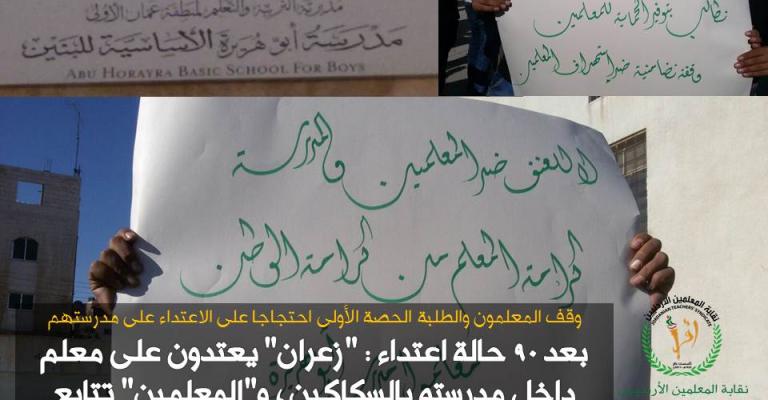 مديرية التربية والتعليم لمنطقة عمان الأولى
مدرسة أبو هريرة الأساسية للبنين
ABU HORAYRA BASIC SCHOOL FOR BOYS
نطالب بتوفير الحماية للمعلمين
وقفة تضامنية ضد إستهداف المعلمين
لا للعنف ضد المعلمين والمدرسة
كرامة المعلم من كرامة الوطن
وقف المعلمون والطلبة الحصة الأولى احتجاجا على الاعتداء على مدرستهم
بعد ٩٠ حالة اعتداء : "زعران" يعتدون على معلم
داخل مدرسته بالسكاكين، و"المعلمين" تتابع
نقابة المعلمين الأردنيين
JORDANIAN TEACHERS SYNDICATE
اقرأ
نقابة المعلمين الأردنيين